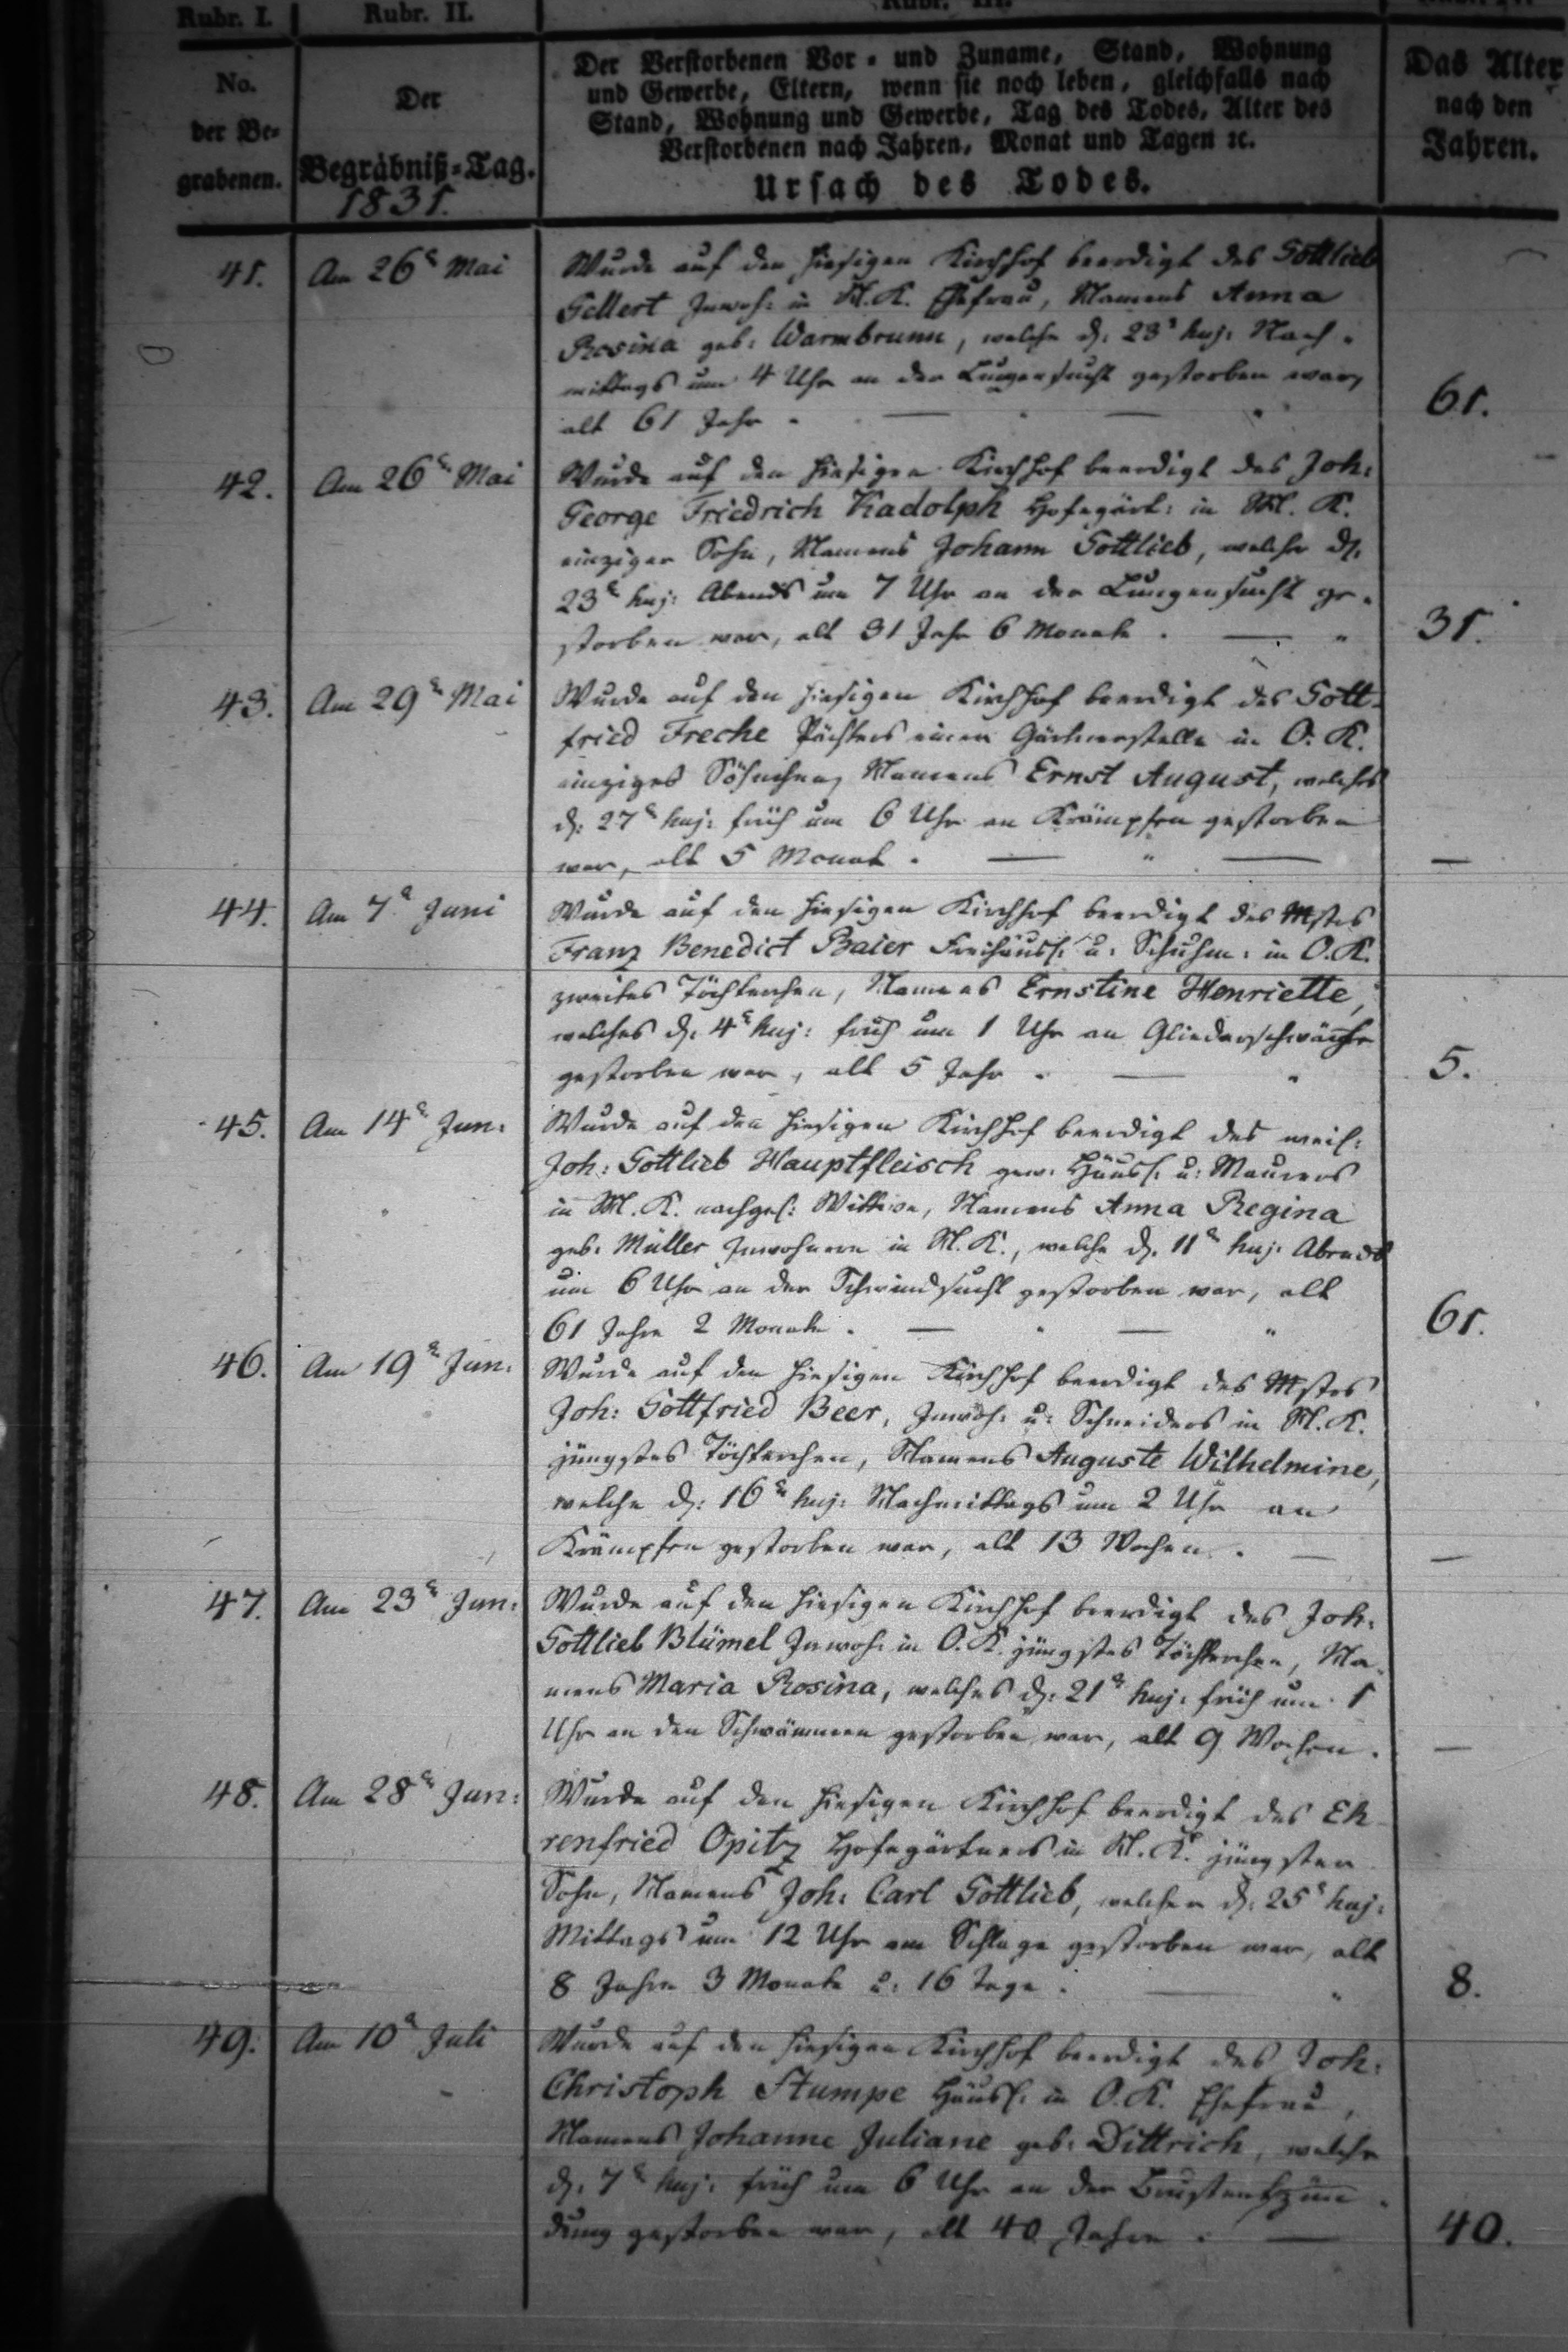 Rubr. I. Rubr. II. Rubr. III.
No. der Begrabenen.
Der Begräbniß-Tag.
1831.
Der Verstorbenen Vor- und Zuname, Stand, Wohnung
und Gewerbe, Eltern, wenn sie noch leben, gleichfalls nach
Stand, Wohnung und Gewerbe, Tag des Todes, Alter des
Verstorbenen nach Jahren, Monat und Tagen ꝛc.
Ursach des Todes.
Das Alter
nach den
Jahren.
41. Am 26t Mai Wurde auf den hiesigen Kirchhof beerdigt des Gottlieb
Gellert Inwoh: in Kl. K. Ehefrau, Namens Anna
Rosina geb: Warmbrunn, welche d: 23t huj: Nach-
mittags um 4 Uhr an der Lungensucht gestorben war,
alt 61 Jahr. 61.
42. Am 26t Mai Wurde auf den hiesigen Kirchhof beerdigt des Joh:
George Friedrich Kadolph Hofegärt: in Kl. K.
einziger Sohn, Namens Johann Gottlieb, welcher d:
23t huj: Abends um 7 Uhr an der Lungensucht ge-
storben war, alt 31 Jahr 6 Monate. 31.
43. Am 29t Mai Wurde auf den hiesigen Kirchhof beerdigt des Gott-
fried Freche Pächters einer Gärtnerstelle in O. K.
einziges Söhnchen, Namens Ernst August, welches
d: 27t huj: früh um 6 Uhr an Krämpfen gestorben
war, alt 5 Monat. —
44. Am 7t Juni Wurde auf den hiesigen Kirchhof beerdigt des Mstrs
Franz Benedict Baier Freihäusl: u: Schuhm: in O. K.
zweites Töchterchen, Namens Ernstine Henriette,
welches d: 4t huj: früh um 1 Uhr an Gliederschwäche
gestorben war, alt 5 Jahr. 5.
45. Am 14t Jun: Wurde auf den hiesigen Kirchhof beerdigt des weil:
Joh: Gottlieb Hauptfleisch gew: Häusl: u: Maurers
in Kl. K. nachgel: Wittwe, Namens Anna Regina
geb: Müller Inwohnern in Kl. K., welche d. 11t huj: Abends
um 6 Uhr an der Schwindsucht gestorben war, alt
61 Jahre 2 Monate. 61.
46. Am 19t Jun: Wurde auf den hiesigen Kirchhof beerdigt des Mstrs
Joh: Gottfried Beer, Inwoh: u: Schneiders in Kl. K.
jüngstes Töchterchen, Namens Auguste Wilhelmine,
welche d: 16t huj: Nachmittags um 2 Uhr an
Krämpfen gestorben war, alt 13 Wochen. —
47. Am 23t Jun: Wurde auf den hiesigen Kirchhof beerdigt des Joh:
Gottlieb Blümel Inwoh: in O. K. jüngstes Töchterchen, Na-
mens Maria Rosina, welches d: 21t huj: früh um 1
Uhr an den Schwämmen gestorben war, alt 9 Wochen. —
48. Am 28t Jun: Wurde auf den hiesigen Kirchhof beerdigt des Eh-
renfried Opitz Hofegärtners in Kl. K. jüngster
Sohn, Namens Joh: Carl Gottlieb, welcher d: 25t huj:
Mittags um 12 Uhr am Schlage gestorben war, alt
8 Jahre 3 Monate u: 16 Tage. 8.
49. Am 10t Juli Wurde auf den hiesigen Kirchhof beerdigt des Joh:
Christoph Stumpe Häusl: in O. K. Ehefrau,
Namens Johanne Juliane geb: Dittrich, welche
d: 7t huj: früh um 6 Uhr an der Brustentzün-
dung gestorben war, alt 40 Jahre. 40.